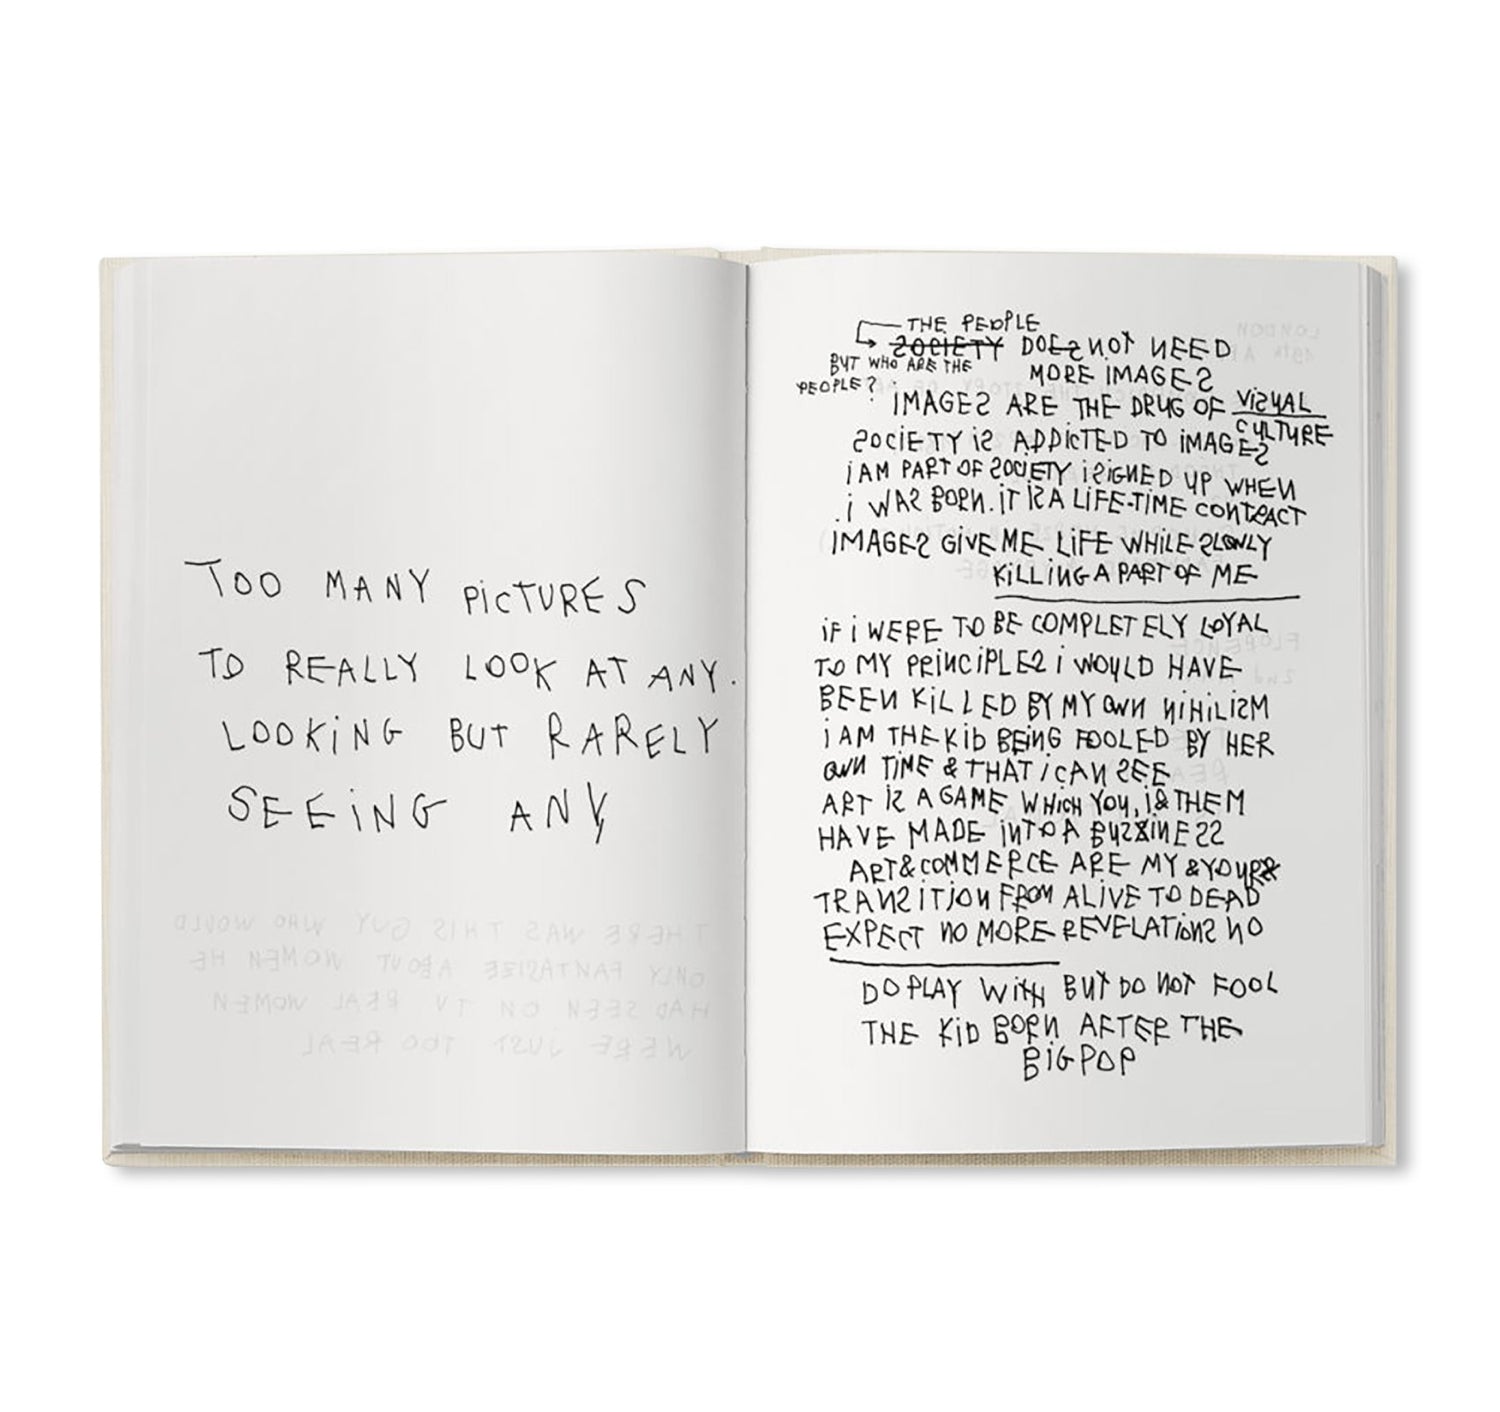 TOO MANY PiCTURES
TO REALLY LOOK AT ANY.
LOOKiNG BUT RARELY
SEEiNG ANY
THERE WAS THIS GUY WHO WOULD
ONLY FANTASIZE ABOUT WOMEN HE
HAD SEEN ON TV REAL WOMEN
WERE JUST TOO REAL
THE PEOPLE
SOCIETY DOES NOT NEED
BUT WHO ARE THE
PEOPLE?
MORE IMAGES
IMAGES ARE THE DRUG OF VISUAL
CULTURE
SOCiETY iS ADDiCTED TO iMAGES
i AM PART OF SOCIETY i SIGNED UP WHEN
i WAS BORN. iT iS A LIFE-TIME CONTRACT
IMAGES GIVE ME LiFE WHILE SLOWLY
KiLLiNG A PART OF ME
iF i WERE TO BE COMPLETELY LOYAL
TO MY PRiNCiPLES i WOULD HAVE
BEEN KiLLED BY MY OWN NiHiLiSM
i AM THE KiD BEiNG FOOLED BY HER
OWN TiME & THAT i CAN SEE
ART iS A GAME WHiCH YOU, i & THEM
HAVE MADE iNTO A BUSiNESS
ART & COMMERCE ARE MY & YOUR
TRANSiTiON FROM ALiVE TO DEAD
EXPECT NO MORE REVELATiONS NO
DO PLAY WiTH BUT DO NOT FOOL
THE KiD BORN AFTER THE
BiG POP
LONDON
FLORENCE